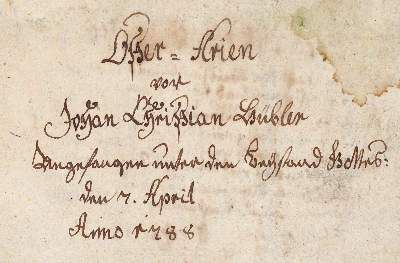 Oster = Arien
vor
Johan Christian Hübler
Angefangen unter den beystand Gottes:
den 7. April
Anno 1788